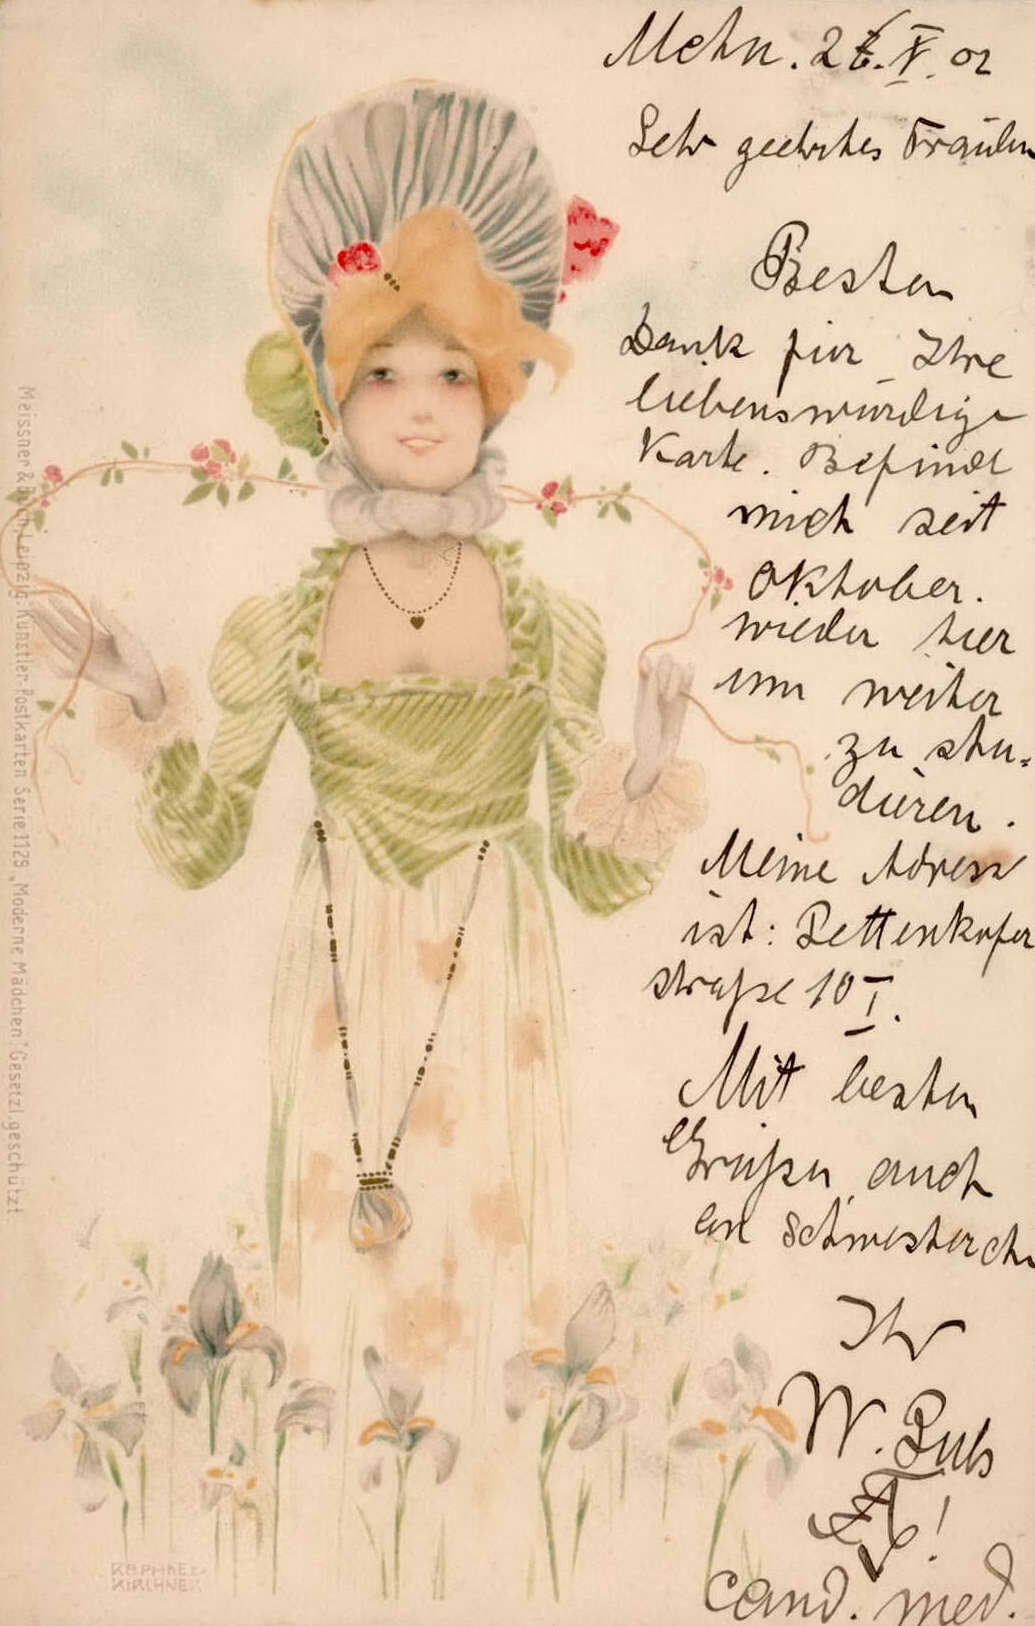 Mchn. 26. V. 02
Sehr geehrtes Fräulein
Besten
Dank für Ihre
liebenswürdige
Karte. Befinde
mich seit
Oktober.
wieder hier
um weiter
zu stu-
dieren.
Meine Adresse
ist: Pettenkofer
straße 10 I.
Mit besten
Grüßen auch
an Schwesterchen
Ihr
W.
cand. med.
Meissner & Buch, Leipzig: Künstler-Postkarten Serie 1129 „Moderne Mädchen“. Gesetzl. geschützt
RAPHAEL
KIRCHNER